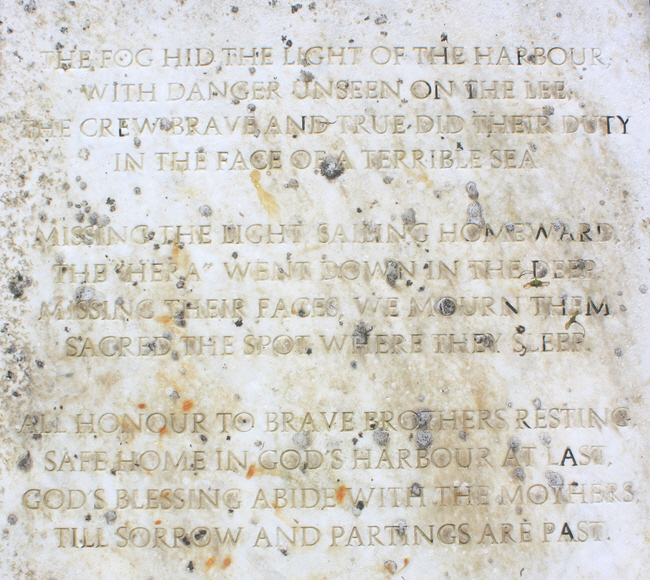 THE FOG HID THE LIGHT OF THE HARBOUR,
WITH DANGER UNSEEN ON THE LEE,
THE CREW BRAVE AND TRUE DID THEIR DUTY
IN THE FACE OF A TERRIBLE SEA.
MISSING THE LIGHT, SAILING HOMEWARD,
THE "HERA" WENT DOWN IN THE DEEP.
MISSING THEIR FACES, WE MOURN THEM
SACRED THE SPOT, WHERE THEY SLEEP.
ALL HONOUR TO BRAVE BROTHERS RESTING,
SAFE HOME IN GOD'S HARBOUR AT LAST,
GOD'S BLESSING ABIDE WITH THE MOTHERS,
TILL SORROW AND PARTINGS ARE PAST.